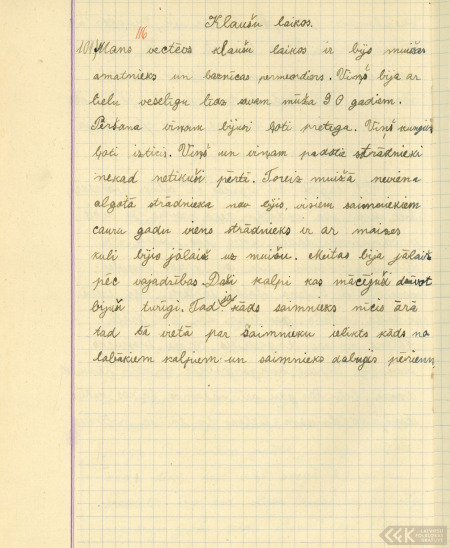 Klaušu laikos.
116
101) Mans vectēvs klaušu laikos ir bijis muižas
amatnieks un baznīcas permenders. Viņš bija ar
lielu veselību līdz savam mūža 90 gadiem.
Peršana viņam bijusi ļoti pretīga. Viņš kungiem
ļoti izticis. Viņš un viņam padotie strādnieki
nekad netikuši pērti. Toreiz muižā neviena
algota strādnieka nav bijis, visiem saimniekiem
cauru gadu viens strādnieks ir ar maizes
kuli bijis jālaiž uz muižu. Meitas bija jālaiž
pēc vajadzības. Daži kalpi kas mācējuši dzīvot
bijuši turīgi. Tad ja kāds saimnieks ticis ārā
tad tā vietā par saimnieku ielikts kāds no
labākiem kalpiem un saimnieks dabūjis pērienu
LATVIEŠU FOLKLORAS KRĀTUVE